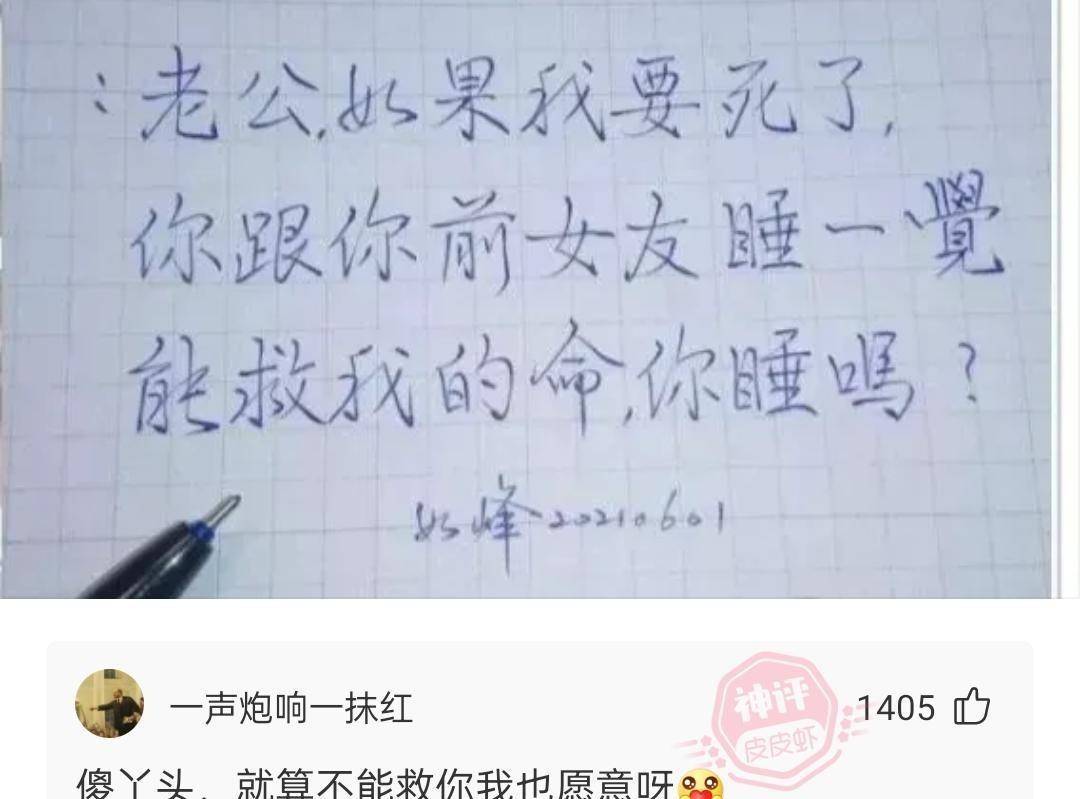 ：老公,如果我要死了,
你跟你前女友睡一覺
能救我的命,你睡嗎？
如峰 20210601
一声炮响一抹红
神评
皮皮虾
1405
傻丫头，就算不能救你我也愿意呀